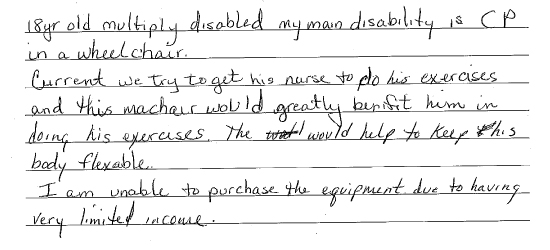 18yr old multiply disabled my main disability is CP
in a wheelchair.
Current we try to get his nurse to do his exercises
and this machair would greatly benifit him in
doing his exercises. The would help to keep his
body flexable.
I am unable to purchase the equipment due to having
very limited income.